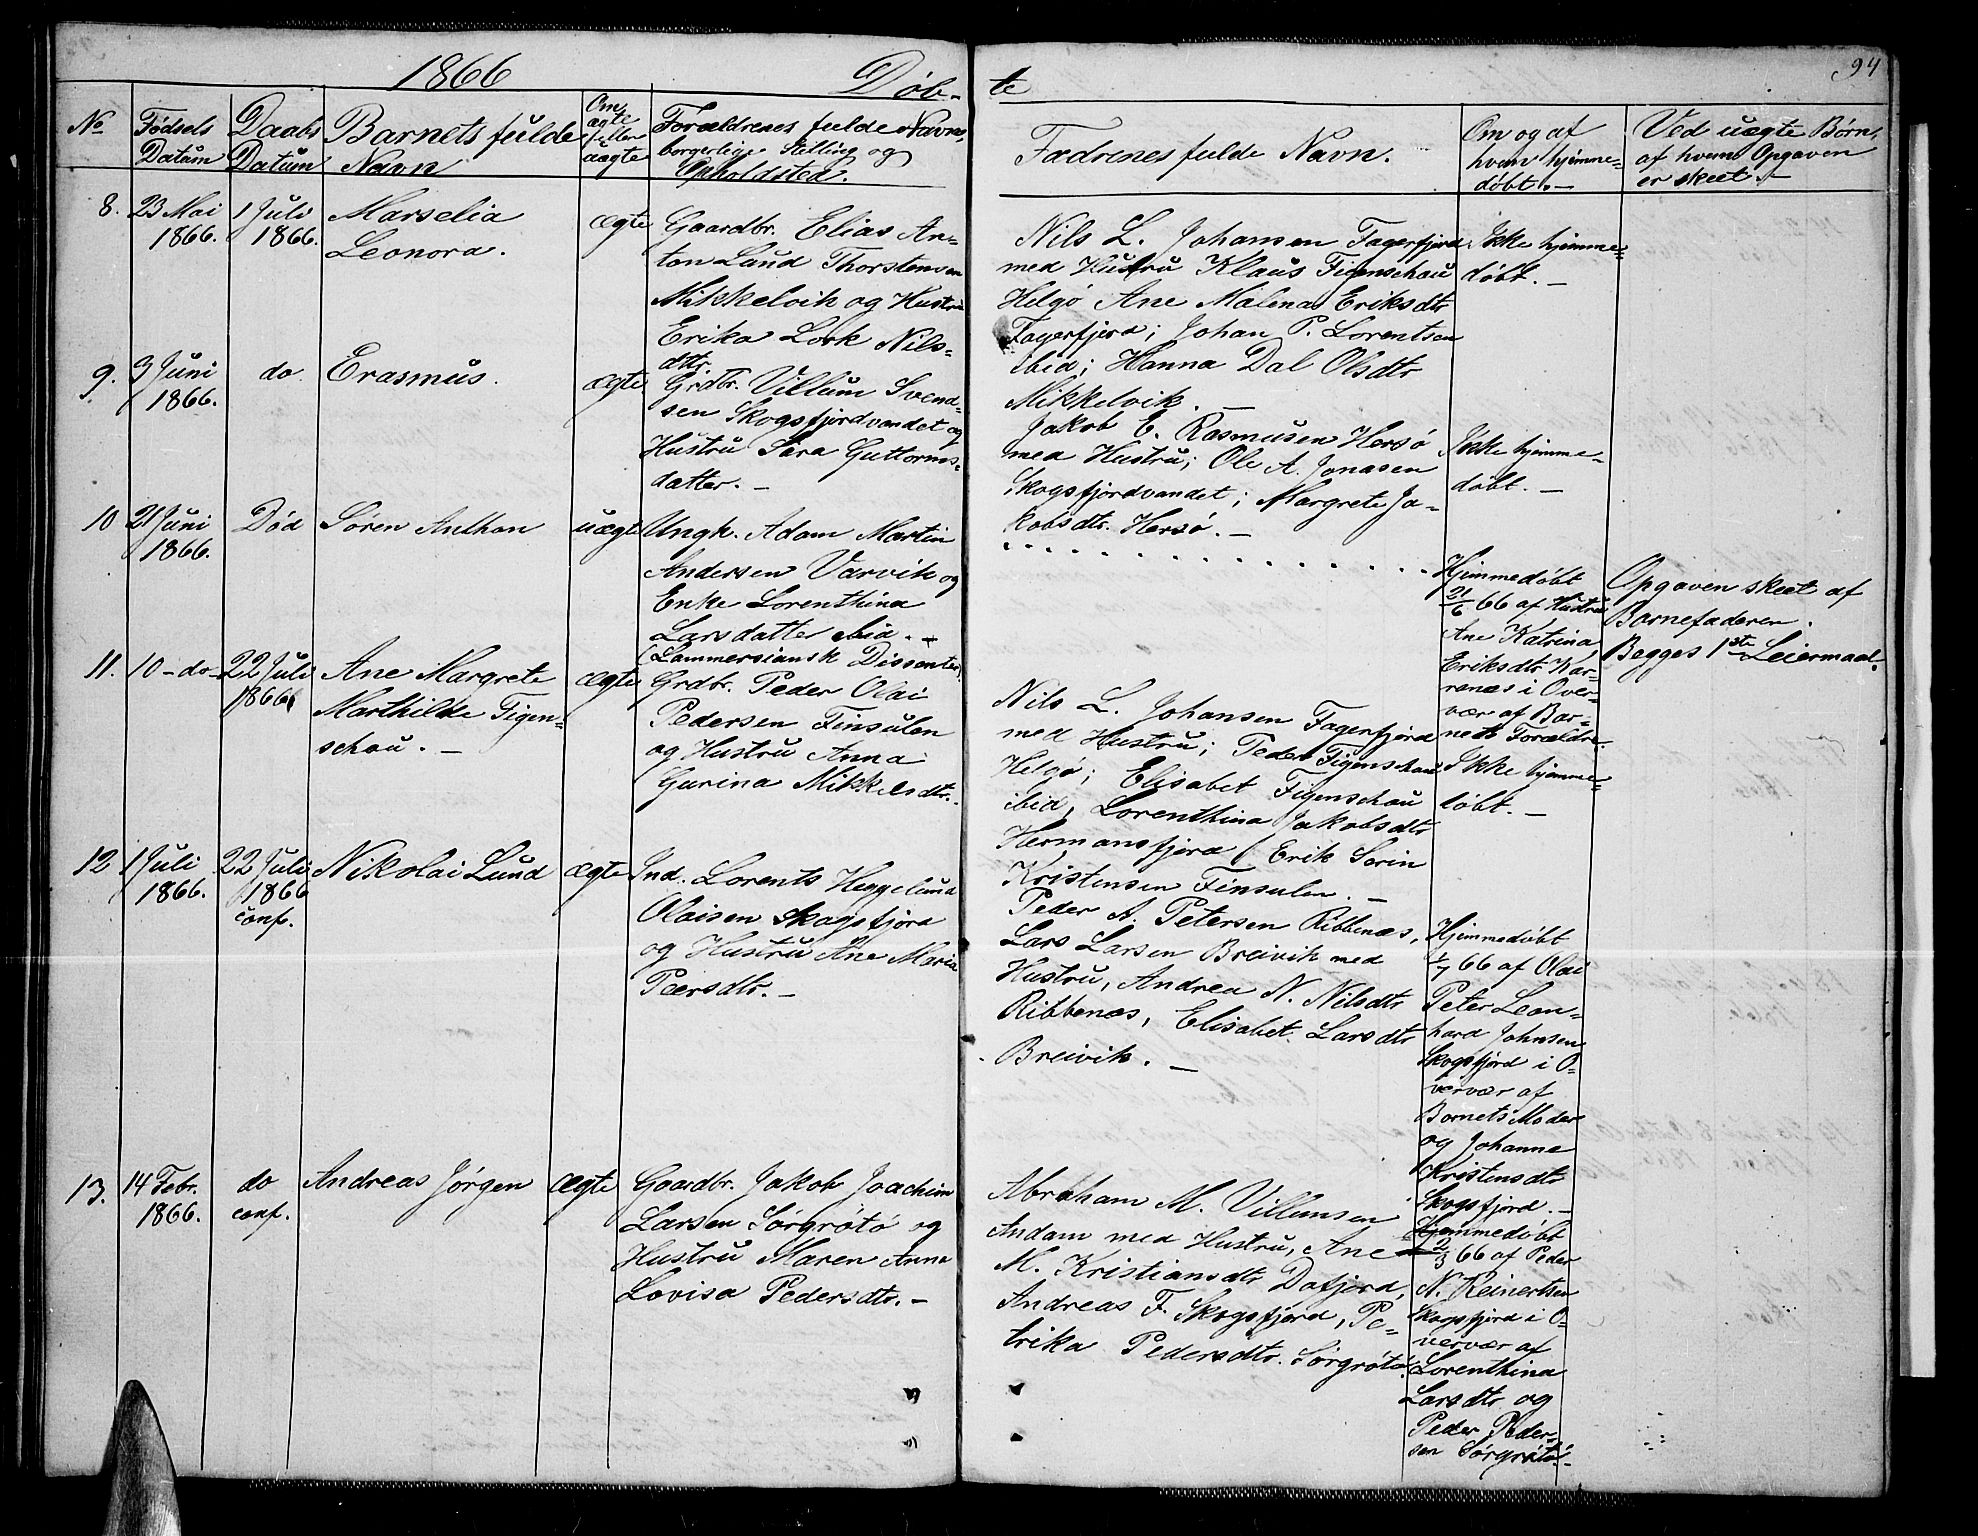 1866 Døb- te 94
No
Fødsels Datum
Daabs Datum
Barnets fulde Navn
Om ægte eller uægte
Forældrenes fulde Navne, borgerlige Stilling og Opholdsted.
Fadrenes fulde Navn.
Om og af hvem hjemme= døbt. -
Ved uægte Børn, af hvem Opgaven er skeet. -
8.
23 Mai
1866.
1 Juli
1866.
Marselia
Leonora.
ægte
Gaardbr. Elias An=
ton Lund Thorstensen
Mikkelvik og Hustru
Erika Lork Nils=
dtr.
Nils L. Johansen Fagerfjord
med Hustru Klaus Figenschau
Helgø Ane Malena Eriksdtr
Fagerfjord; Johan P. Lorentsen
ibid; Hanna Dal Olsdtr
Mikkelvik. -
Ikke hjemme=
døbt. -
9.
3 Juni
1866.
do.
Erasmus.
ægte
Grdbr. Villum Svend=
sen Skogsfjordvandet og
Hustru Sara Guttorms=
datter. -
Jakob E. Rasmusen Hersø
med Hustru; Ole A. Jonasen
Skogsfjordvandet; Margrete Ja=
kobsdtr. Hersø. -
Ikke hjemme=
døbt. -
10
21 Juni
1866.
Død
Sören Anthon
uægte
Ungk. Adam Martin
Andersen Varvik og
Enke Lorenthina
Larsdatter ibid. -
(Lammersiansk Dissenter)
Hjemmedøbt
21/6 66 af Hustru
Ane Katrina
Eriksdtr. Kar=
renæs i Over=
vær af Bar=
nets Forældre.
Opgaven skeet af
Barnefaderen.
Begges 1ste Leiermaal.
11.
10 - do -
22 Juli
1866
Ane Margrete
Marthilde Figen=
schau. -
ægte
Grdbr. Peder Olai
Pedersen Finsulen
og Hustru Anna
Gurina Mikkelsdtr.
Nils L. Johansen Fagerfjord
med Hustru; Peder Figenschau
Helgø; Elisabet Figenschau
ibid, Lorenthina Jakobsdtr
Hermansfjord (Erik Sørin
Kristensen Finsulen. -
Ikke hjemme=
døbt. -
12
1 Juli
1866.
22 Juli
1866
conf.
Nikolai Lund
ægte
Ind. Lorents Heggelund
Olaisen Skogsfjord
og Hustru Ane Maria
Peersdtr. -
Peder A. Petersen Ribbenæs,
Lars Larsen Breivik med
Hustru, Andrea N. Nilsdtr
Ribbenæs, Elisabet Larsdtr
Breivik. -
Hjemmedøbt
1/7 66 af Olai
Peter Leon=
hard Johnsen
Skogsfjord i O=
vervær af
Barnets Moder
og Johanne
Kristensdtr
Skogsfjord. -
13.
14 Febr.
1866.
do
conf.
Andreas Jørgen
ægte
Gaardbr. Jakob Joachim
Larsen Sørgrøtø og
Hustru Maren Anna
Lovisa Pedersdtr. -
Abraham M. Villumsen
Andam med Hustru, Ane
M. Kristiansdtr Dafjord,
Andreas F. Skogsfjord, Pe=
trika Pedersdtr. Sørgrøtø.
Hjemmedøbt
2/3 66 af Peder
N. Reinertsen
Skogsfjord i O=
vervær af
Lorenthina
Larsdtr og
Peder Peder=
sen Sørgrøtø. -